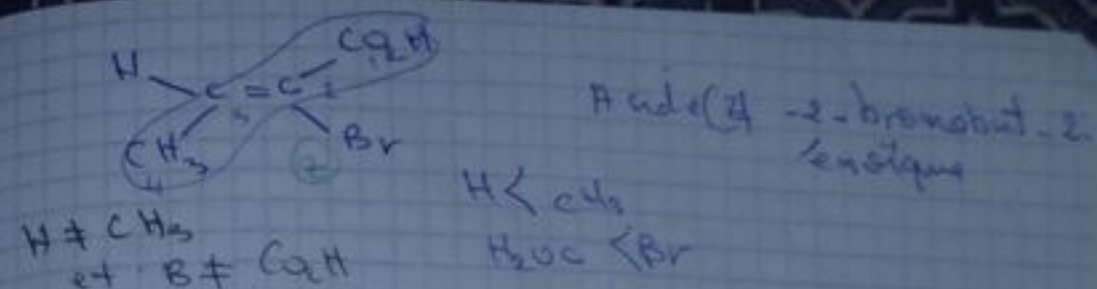 H CO2H
C = C
CH3 Br
4 3 2 1
Z
Acide (Z) -2-bromobut-2-
énoïque
H < CH3
HO2C < Br
H ≠ CH3
et B ≠ CO2H